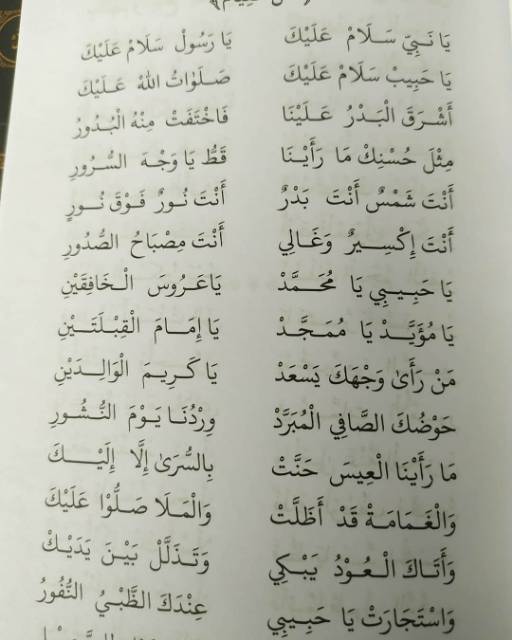 يَا نَبِيّ سَلَامْ عَلَيْكَ يَا رَسُولْ سَلَامْ عَلَيْكَ
يَا حَبِيبْ سَلَامْ عَلَيْكَ صَلَوَاتُ اللهْ عَلَيْكَ
أَشْرَقَ الْبَدْرُ عَلَيْنَا فَاخْتَفَتْ مِنْهُ الْبُدُورُ
مِثْلَ حُسْنِكْ مَا رَأَيْنَا قَطُّ يَا وَجْهَ السُّرُورِ
أَنْتَ شَمْسٌ أَنْتَ بَدْرٌ أَنْتَ نُورٌ فَوْقَ نُورٍ
أَنْتَ إِكْسِيرٌ وَغَالِي أَنْتَ مِصْبَاحُ الصُّدُورِ
يَا حَبِيبِي يَا مُحَمَّدْ يَا عَرُوسَ الْخَافِقَيْنِ
يَا مُؤَيَّدْ يَا مُمَجَّدْ يَا إِمَامَ الْقِبْلَتَيْنِ
مَنْ رَأَىٰ وَجْهَكَ يَسْعَدْ يَا كَرِيمَ الْوَالِدَيْنِ
حَوْضُكَ الصَّافِي الْمُبَرَّدْ وِرْدُنَا يَوْمَ النُّشُورِ
مَا رَأَيْنَا الْعِيسَ حَنَّتْ بِالسُّرَىٰ إِلَّا إِلَيْكَ
وَالْغَمَامَةْ قَدْ أَظَلَّتْ وَالْمَلَا صَلُّوْا عَلَيْكَ
وَأَتَاكَ الْعُوْدُ يَبْكِي وَتَذَلَّلْ بَيْنَ يَدَيْكْ
وَاسْتَجَارَتْ يَا حَبِيبِي عِنْدَكَ الظَّبْيُ النُّفُورُ